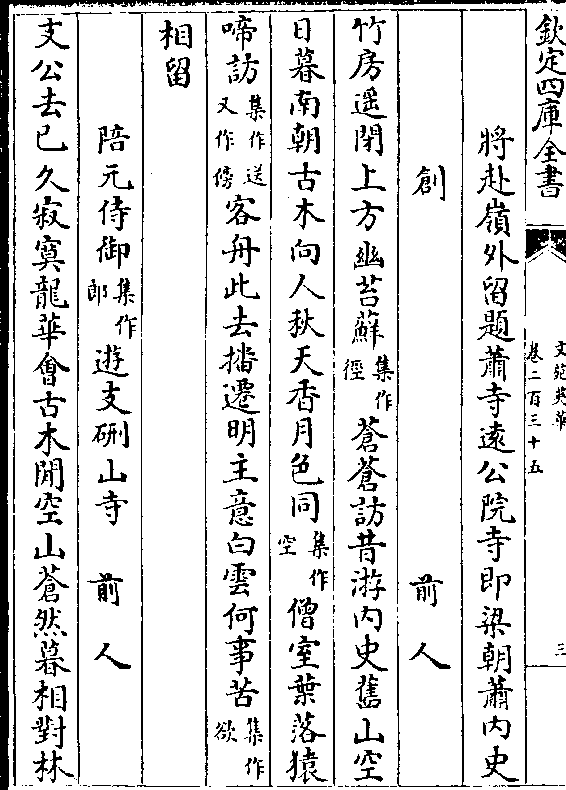 欽定四庫全書
文苑英華
卷二百三十五
三
將赴嶺外留題蕭寺遠公院寺即梁朝蕭内史
創 前人
竹房遥閉上方幽苔蘇集作徑蒼蒼訪昔游内史舊山空
日暮南朝古木向人秋天香月色同集作空僧室葉落猿
啼訪集作送又作傍客舟此去播遷明主意白雲何事苦集作欲
相留
陪元侍御集作郎遊支硎山寺 前人
支公去已久寂寞龍華會古木閉空山蒼然暮相對林